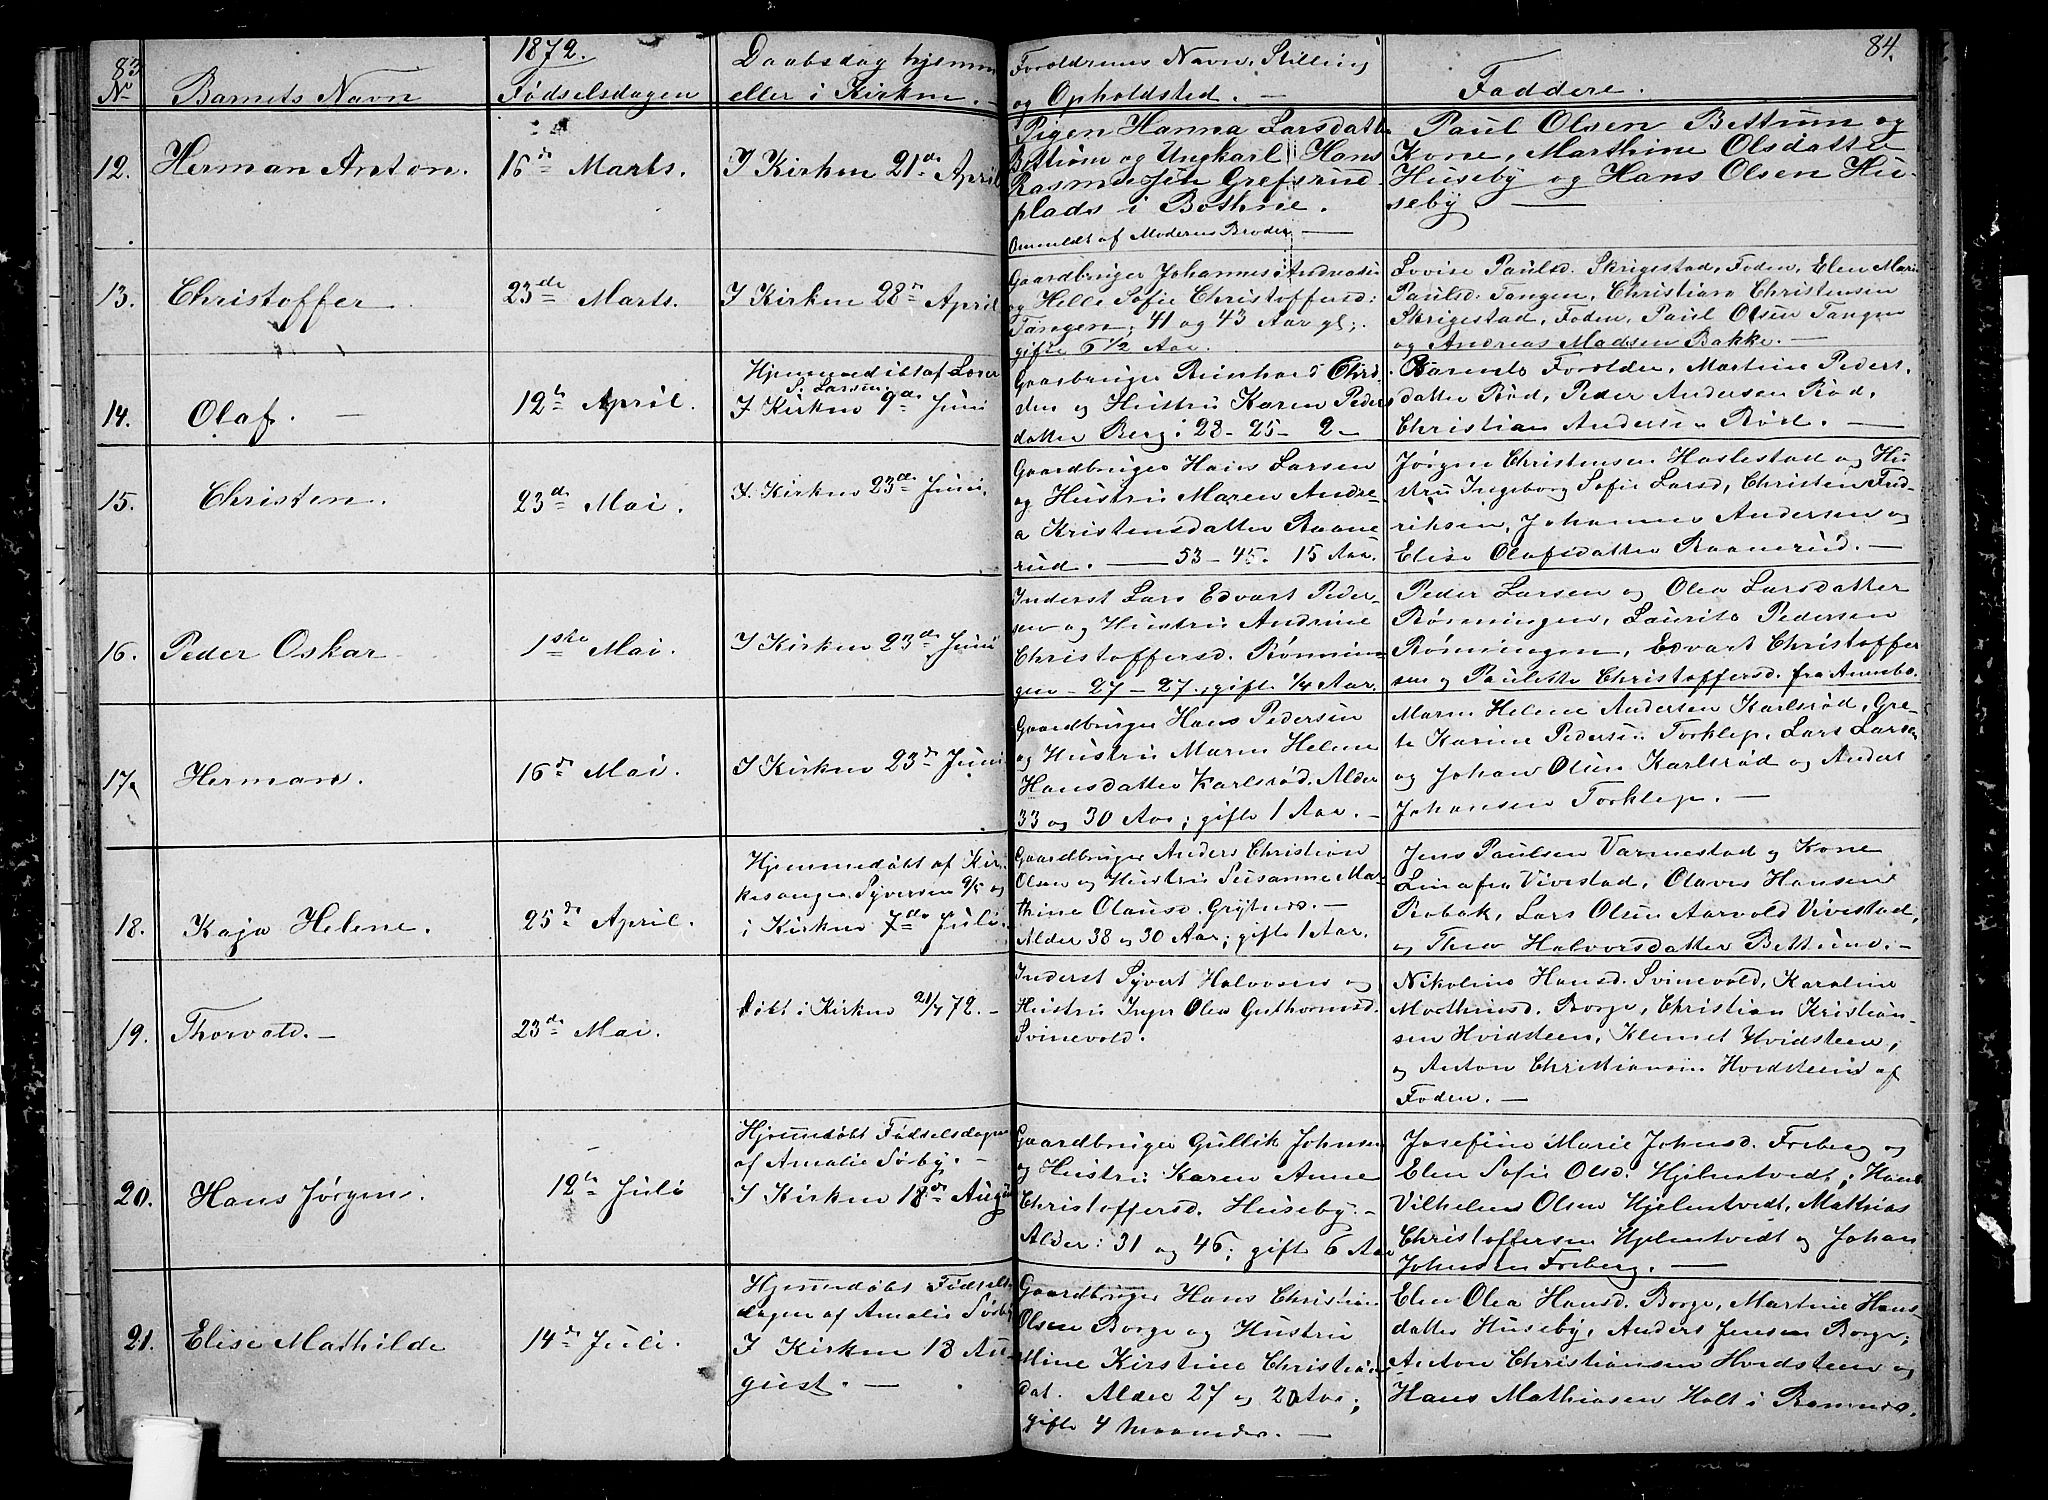 83
1872.
84.
No
Barnets Navn
Fødselsdagen
Daabsdag hjemme
eller i Kirken. -
Forældrenes Navn, Stilling
og Opholdsted. -
Faddere.
12.
Herman Anton.
16de Marts.
I Kirken 21de April
Pigen Hanna Larsdatt
Bettum og Ungkarl Hans
Rasmussen Grefsrud
plads i Bothne.
Anmeldt af Moderens Broder -
Paul Olsen Bettum og
Kone, Marthine Olsdatter
Huseby og Hans Olsen Hu-
seby. -
13.
Christoffer
23de Marts.
I Kirken 28de April
Gaardbruger Johannes Andreasen
og Helle Sofie Christoffersd:
Tangen, 41 og 43 Aar gl;
gifte 6 1/2 Aar.
Lovise Paulsd. Skrigestad, Foden, Elen Marie
Paulsd. Tangen, Christian Christensen
Skrigestad, Foden, Paul Olsen Tangen
og Andreas Madsen Bakke. -
14.
Olaf. -
12te April.
Hjemmedøbt af Lærer
S. Larsen.
I Kirken 9de Juni
Gaardbruger Reinhard
og Hustru Karen Peders
datter Berg: 28 - 25 - 2 -
Barnets Forældre, Martine Peders.
datter Rød, Peder Andersen Rød,
Christian Andersen Rød. -
15.
Christen.
23de Mai.
I Kirken 23de Juni.
Gaardbruger Hans Larsen
og Hustru Maren Andre-
a Kristensdatter Raane-
rud. - 53 - 45. 15 Aar.
Jørgen Christensen Haslestad og Hu-
stru Ingeborg Sofie Larsd, Christen Fred-
riksen, Johannes Andersen og
Elise Olafsdatter Raanerud. -
16.
Peder Oskar
1ste Mai.
I Kirken 23de Juni
Inderst Lars Edvart Peder-
sen og Hustru Andrine
Christoffersd. Rønnin-
gen - 27 - 27, gifte 1/4 Aar.
Peder Larsen og Olea Larsdatter
Rønningen, Laurits Pedersen
Rønningen, Edvart Christoffer
sen og Paulette Christoffersd. fra
17.
Herman.
16de Mai.
I Kirken 23de Juni
Gaardbruger Hans Pedersen
og Hustru Maren Helene
Hansdatter Karlsrød. Alder
33 og 30 Aar; gifte 1 Aar. -
Maren Helene Andersen Karlsrød, Gre-
te Karine Pedersen Torklep, Lars Larsen
og Johan Olsen Karlsrød og Anders
Johansen Torklep. -
18.
Kaja Helene.
25de April.
Hjemmedøbt af Kir-
kesanger Syversen 9/5 og
i Kirken 7de Juli.
Gaardbruger Anders Christian
Olsen og Hustru Susanne Mar-
thine Olausd. Grytnes. -
Alder 38 og 30 Aar; gifte 1 Aar.
Jens Paulsen Varmestad og Kone
Vivestad, Olaves Hansen
Robak, Lars Olsen Aarvold Vivestad,
og Thea Halvorsdatter Bettum. -
19.
Thorvald. -
23de Mai.
Døbt i Kirken 21/7 72. -
Inderst Syvert Halvorsen og
Hustru Inger Olea Guthormsd.
Svinevold.
Nikoline Hansd. Svinevold, Karoline
Mathiasd. Borge, Christian Kristian-
sen Hvidsteen, Klemet Hvidsteen,
og Anton Christiansen Hvidsteen af
Foden. -
20.
Hans Jørgen.
12te Juli
Hjemmdøbt Fødselsdagen
af Amalie Sørby. -
I Kirken 18de August
Gaardbruger Gullik Johnsen
og Hustru Karen Anne
Christoffersd. Huseby. -
Alder: 31 og 46; gifte 6 Aar
Josefine Marie Johnsd. Freberg og
Elen Sofie Olsd. Hjelmtvedt; Hans
Vilhelm Olsen Hjelmtvedt, Mathias
Christoffersen Hjelmtvedt og Johan
Johnsen Freberg. -
21.
Elise Mathilde
14de Juli.
Hjemmdøbt Fødsels
dagen af Amalie Sørby
I Kirken 18 Au-
gust. -
Gaardbruger Hans Christian
Olsen Borge og Hustru
Mine Kirstine Christians
dat. Alder 27 og 20 Aar;
gifte 4 Maaneder. -
Elen Olea Hansd. Borge, Martine Hans
datter Huseby, Anders Jensen Borge;
Anton Christiansen Hvidsteen og
Hans Mathiasen Holt i Ramnes.